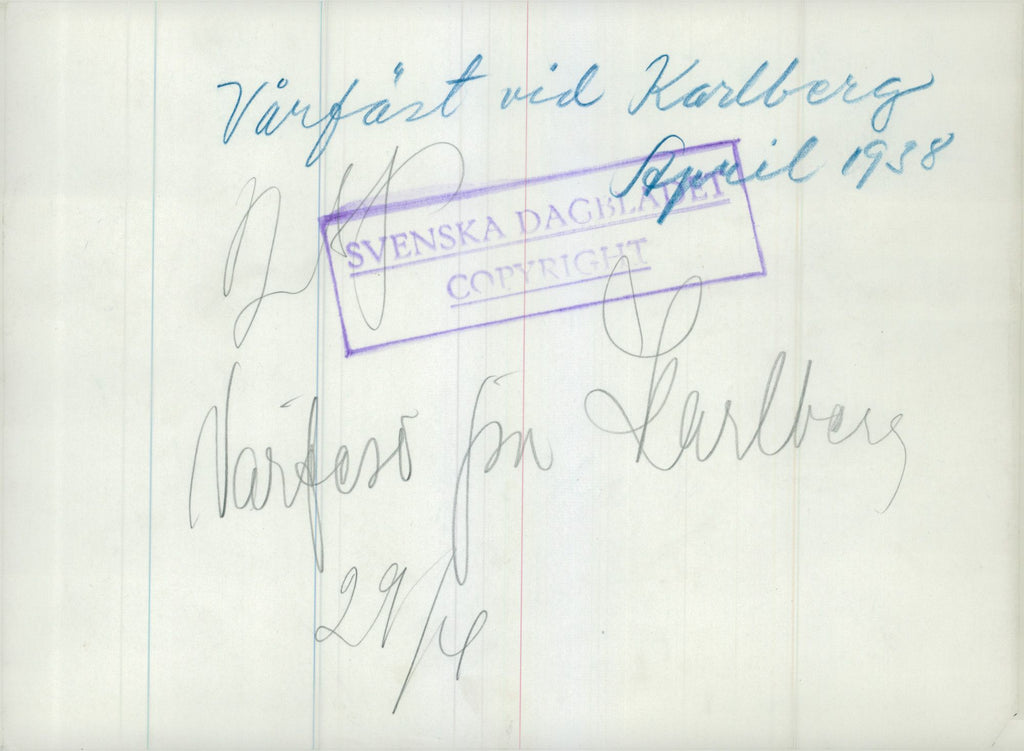 Vårfäst vid Karlberg
April 1938
SVENSKA DAGBLADET
COPYRIGHT
Karlberg
29/4